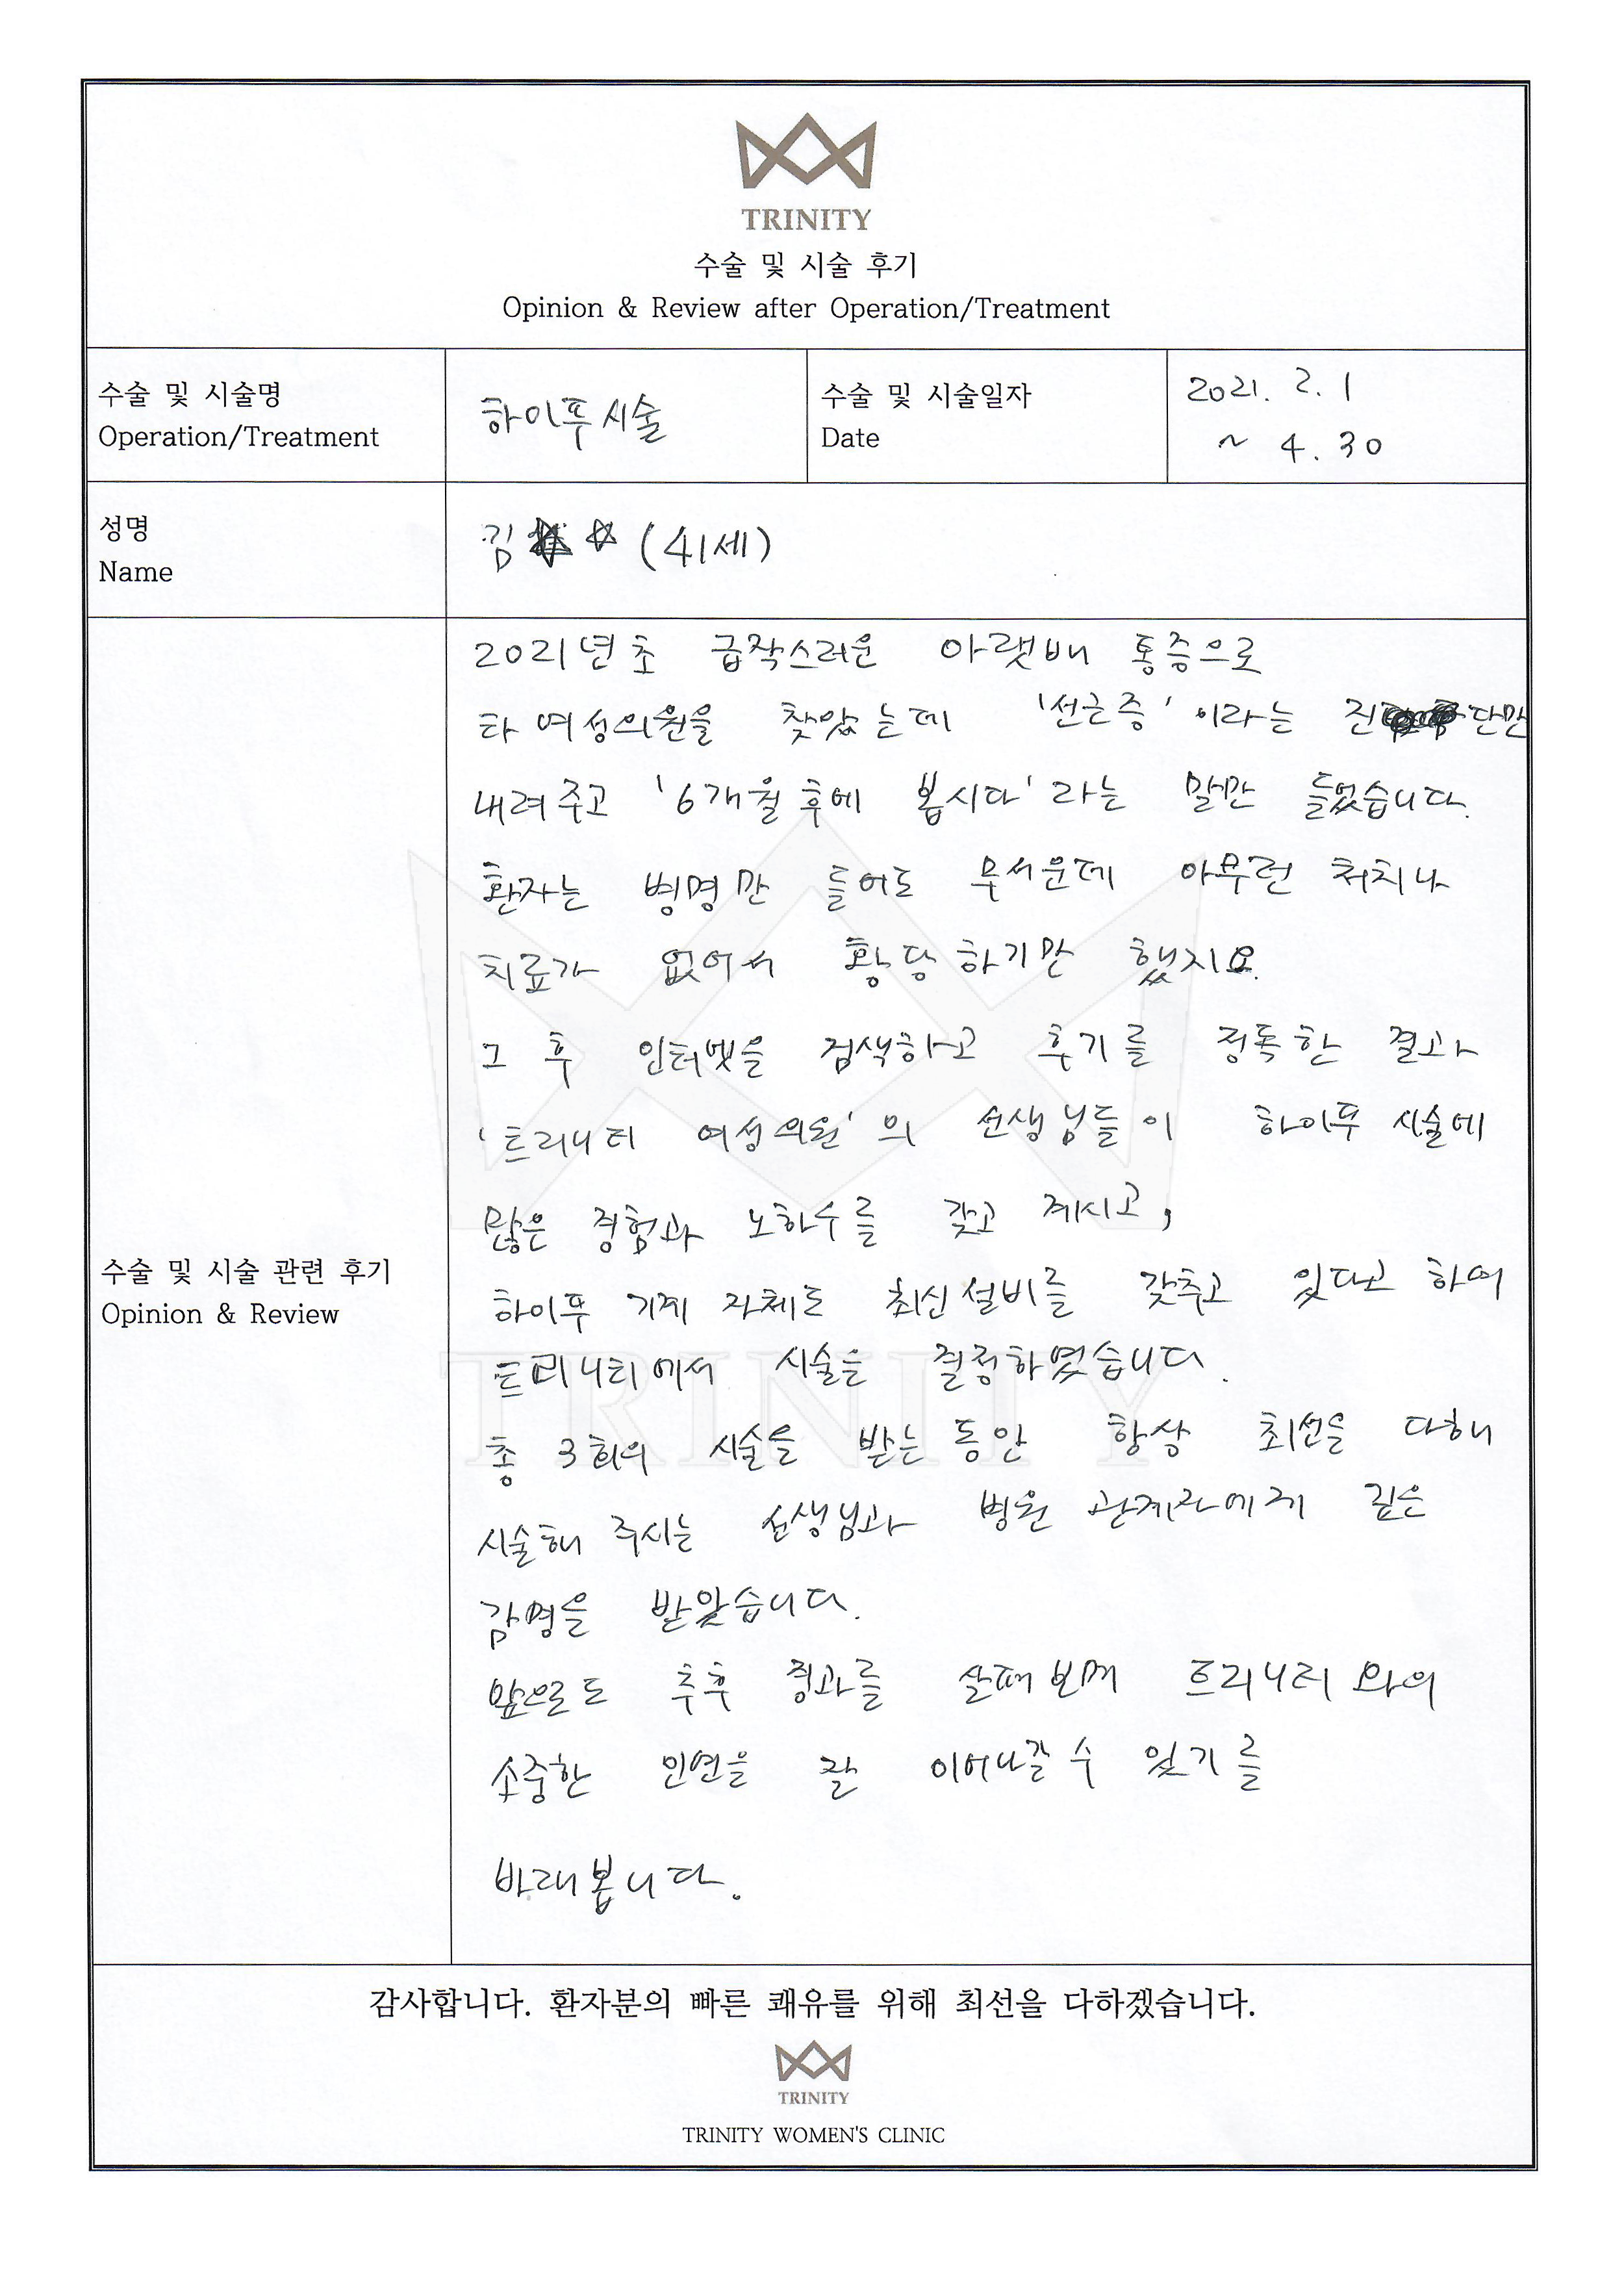 TRINITY
수술 및 시술 후기
Opinion & Review after Operation/Treatment
수술 및 시술명
Operation/Treatment
하이푸시술
수술 및 시술일자
Date
2021. 2. 1
~ 4. 30
성명
Name
김 (41세)
수술 및 시술 관련 후기
Opinion & Review
2021년초 급작스러운 아랫배 통증으로
타 여성의원을 찾았는데 '선근증' 이라는 진단만
내려주고 '6개월 후에 봅시다' 라는 말만 들었습니다.
환자는 병명만 들어도 무서운데 아무런 처치나
치료가 없어서 황당하기만 했지요.
그 후 인터넷을 검색하고 후기를 정독한 결과
'트리니티 여성의원' 의 선생님들이 하이푸 시술에
많은 경험과 노하수를 갖고 계시고,
하이푸 기계 자체도 최신설비를 갖추고 있다고 하여
트리니티에서 시술을 결정하였습니다.
총 3회의 시술을 받는동안 항상 최선을 다해
시술해 주시는 선생님과 병원 관계자에게 깊은
감명을 받았습니다.
앞으로도 추후 경과를 살펴보며 트리니티와의
소중한 인연을 잘 이어나갈 수 있기를
바래봅니다.
TRINITY
감사합니다. 환자분의 빠른 쾌유를 위해 최선을 다하겠습니다.
TRINITY
TRINITY WOMEN'S CLINIC